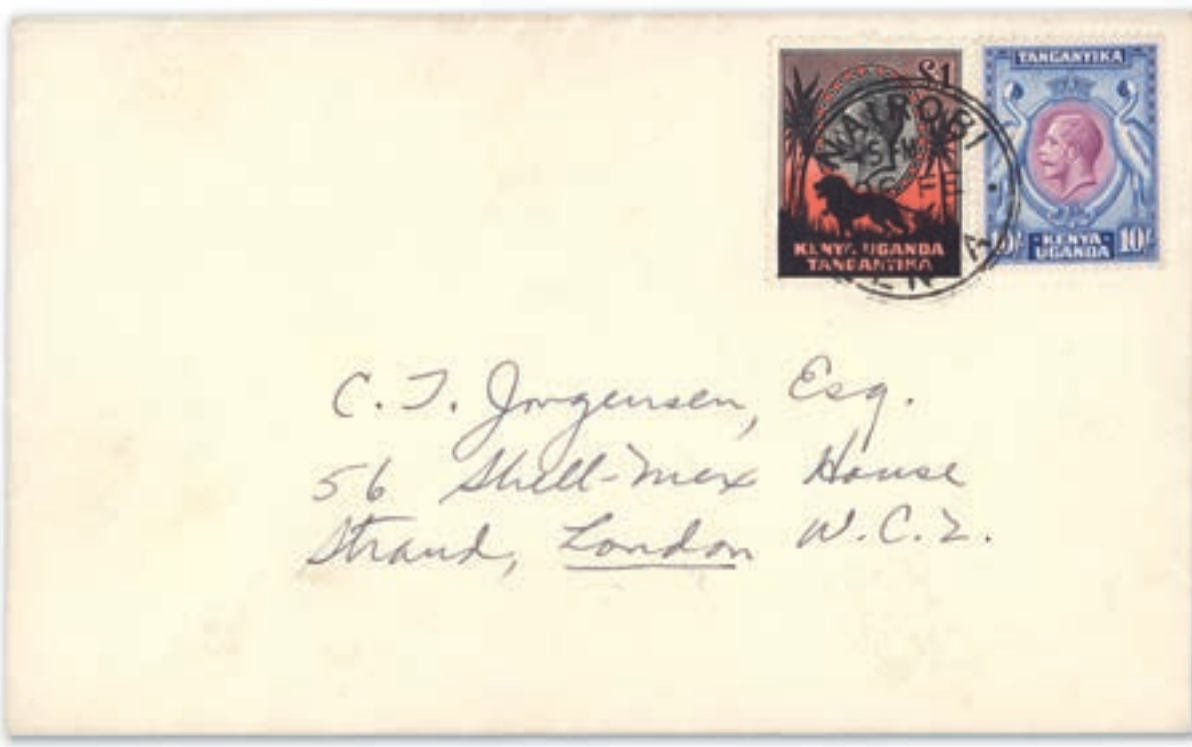 £1
KENYA UGANDA
TANGANYIKA
TANGANYIKA
10/-
KENYA
UGANDA
10/-
NAIROBI
KENYA
C. T. Jorgensen, Esq.
56 Shell-Mex House
Strand, London W.C.2.